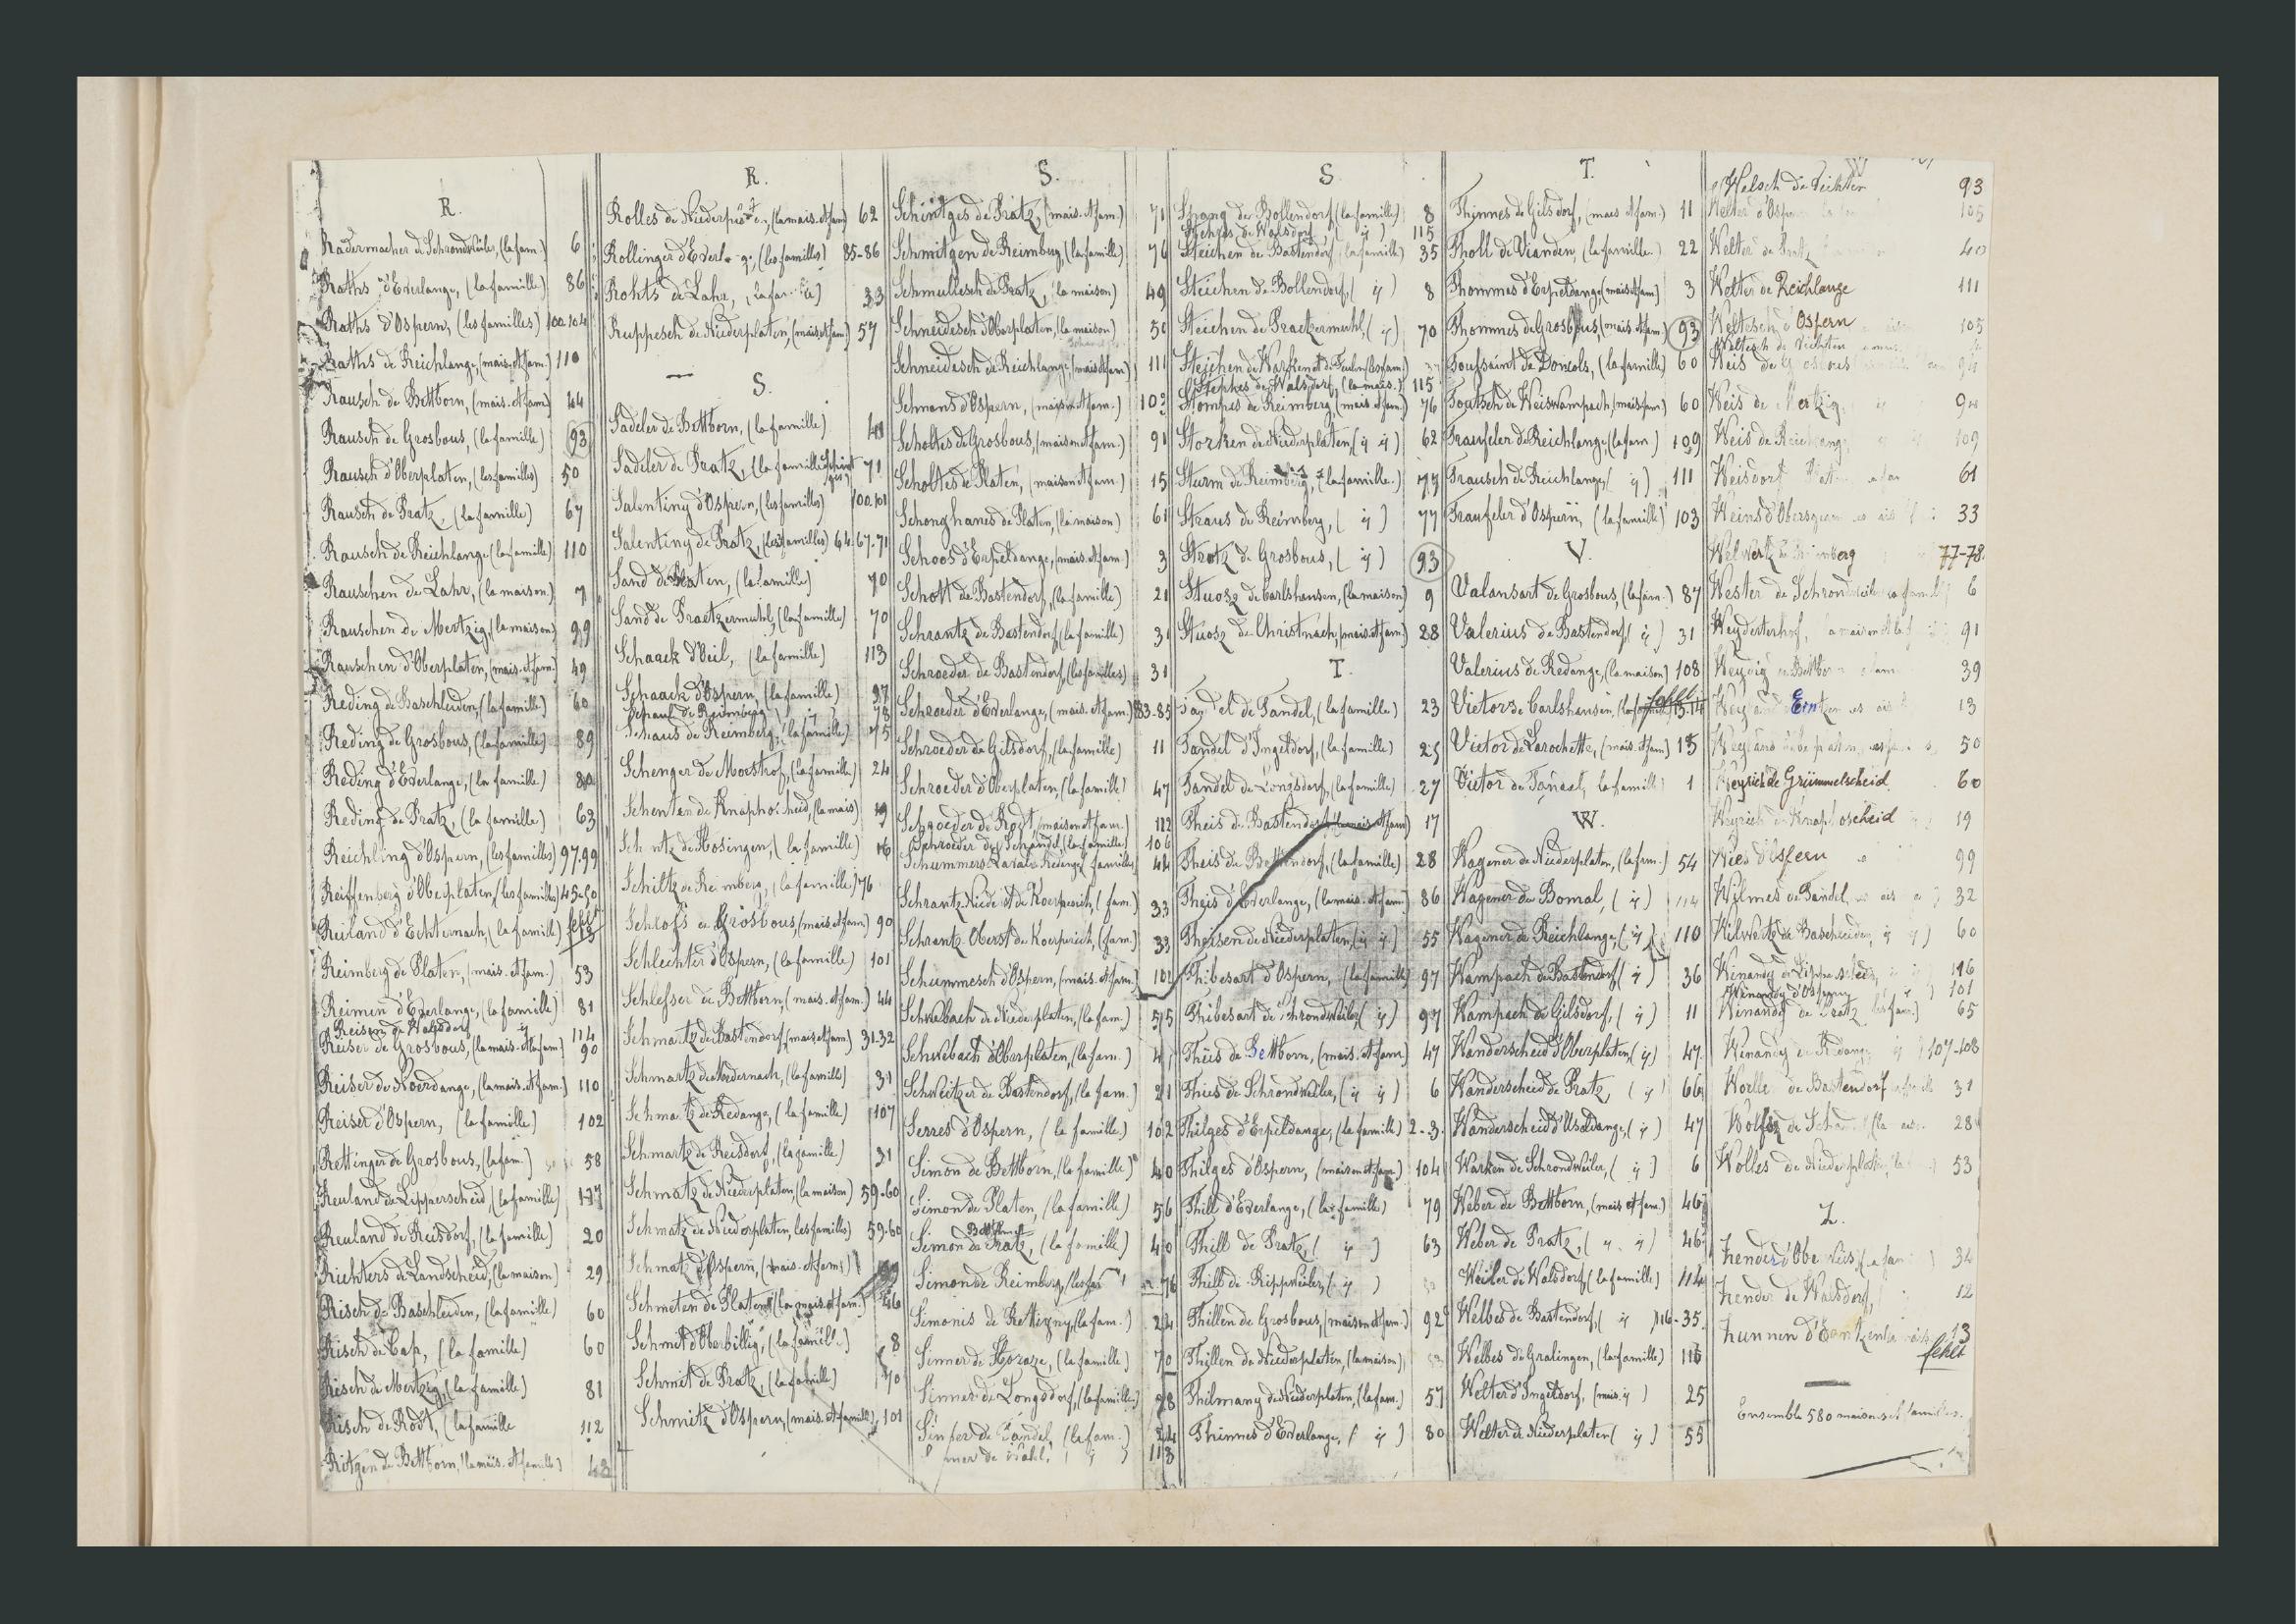 R.
Radermacher de Schrondweiler, (la fam.) 6
Raths d'Everlange, (la famille) 86
Raths d'Ospern, (les familles) 100.104
Raths de Reichlange, (mais. et fam.) 110
Rausch de Bettborn, (mais. et fam.) 44
Rausch de Grosbous, (la famille) 93
Rausch d'Oberplaten, (les familles) 50
Rausch de Pratz, (la famille) 67
Rausch de Reichlange (la famille) 110
Rauschen de Lahr, (la maison) 7
Rauschen de Mertzig, (la maison) 99
Rauschen d'Oberplaten, (mais. et fam.) 49
Reding de Baschleiden, (la famille) 60
Reding de Grosbous, (la famille) 89
Reding d'Everlange, (la famille) 80
Reding de Pratz, (la famille) 63
Reichling d'Ospern, (les familles) 97.99
Reiffenberg d'Oberplaten, (les familles) 45-50
Reiland d'Echternach, (la famille) fehlt
Reimberg de Platen, (mais. et fam.) 53
Reimen d'Everlange, (la famille) 81
Reisen de Walsdorf 114
Reiser de Grosbous, (la mais. et la fam) 90
Reiser de Noerdange, (la mais. et fam.) 110
Reiser d'Ospern, (la famille) 102
Rettinger de Grosbous, (la fam.) 58
Reuland de Lipperscheid, (la famille) 117
Reuland de Reisdorf, (la famille) 20
Richters de Landscheid, (la maison) 29
Risch de Baschleiden, (la famille) 60
Risch de Cap, (la famille) 60
Risch de Mertzig, (la famille) 81
Risch de Rodt, (la famille 112
Ritgen de Bettborn, (la mais. et famille) 42
R.
Rolles de Niederplaten, (la mais. et fam) 62
Rollinger d'Everlange, (les familles) 85-86
Rohts de Lahr, (la famille) 33
Ruppesch de Niederplaten, (mais. et fam) 57
S.
Sadeler de Bettborn, (la famille) 41
Sadeler de Pratz, (la famille 71
Salentiny d'Ospern, (les familles) 100.101
Salentiny de Pratz, (les familles) 64.67-71
Sand de Platen, (la famille) 70
Sand de Praetzermuhl, (la famille) 70
Schaack d'Oeil, (la famille) 113
Schaack d'Ospern, (la famille) 97
Schaul de Reimberg ( ÿ ) 78
Schaus de Reimberg, (la famille) 75
Schenger de Moestrof, (la famille) 24
Schenten de Knaphoscheid, (la mais) 19
Schintz de Hosingen, (la famille) 16
Schiltz de Reimberg, (la famille) 76
Schloss de Grosbous, (mais. et fam.) 90
Schlechter d'Ospern, (la famille) 101
Schlesser de Bettborn, (mais. et fam.) 44
Schmartz de Bastendorf, (mais. et fam) 31-32
Schmartz de Medernach, (la famille) 31
Schmartz de Redange, (la famille) 107
Schmartz de Reisdorf, (la famille) 31
Schmatz de Niederplaten, (la maison) 59-60
Schmatz de Niederplaten, les familles) 59-60
Schmatz d'Ospern, (mais. et fam.)
Schmeten de Platen, (la mais. et fam.) 46
Schmit d'Oberbillig, (la famille) 8
Schmit de Pratz, (la famille) 70
Schmitz d'Ospern, (mais. et famille), 101
S.
Schintges de Pratz, (mais. et fam.) 71
Schmitgen de Reimberg, (la famille) 76
Schmullesch de Pratz, (la maison) 49
Schneidesch d'Oberplaten, (la maison) 50
Schneidesch de Reichlange, (mais. et fam) 111
Schnons d'Ospern, (mais. et fam.) 103
Scholtes de Grosbous, (maison et fam.) 91
Scholtes de Platen, (maison et fam.) 15
Schonghanes de Platen, (la maison) 61
Schoos d'Erpeldange, (mais. et fam.) 3
Schott de Bastendorf, (la famille) 21
Schrantz de Bastendorf, (la famille) 31
Schroeder de Bastendorf, (les familles) 31
Schroeder d'Everlange, (mais. et fam.) 83-85
Schroeder de Gilsdorf, (la famille) 11
Schroeder d'Oberplaten, (la famille) 47
Schroeder de Rodt, (maison et fam.) 112
Schroeder de Schandel, (la famille) 106
Schummers familles 44
Schrantz-Niederst de Koerperich, (fam.) 33
Schrantz-Oberst de Koerperich, (fam.) 33
Schummesch d'Ospern, (mais. et fam.) 102
Schwebach de Niederplaten, (la fam.) 55
Schwebach d'Oberplaten, (la fam.)
Schweitzer de Bastendorf, (la fam.) 21
Serres d'Ospern, (la famille) 102
Simon de Bettborn, (la famille) 40
Simon de Platen, (la famille) 56
Bettborn
Simon de Pratz, (la famille) 40
Simon de Reimberg, (les fam 76
Simonis de Rettigny, (la fam.) 24
Sinner de (la famille) 70
Sinner de Longsdorf, (la famille) 28
Sinner de Tandel, (la fam.) 24
ner de Wahl, ( ÿ ) 113
S.
Spang de Bollendorf, (la famille) 8
de Walsdorf ( ÿ ) 115
Steichen de Bastendorf, (la famille) 35
Steichen de Bollendorf, ( ÿ ) 8
Steichen de Praetzermuhl, ( ÿ ) 70
Steichen de Warken et de Feulen (les fam.)
Stephes de Walsdorf, (la mais.) 115
Stompes de Reimberg, (mais. et fam.) 76
Storken de Niederplaten, (ÿ ÿ) 62
Sturm de Reimberg, (la famille.) 77
Straus de Reimberg, ( ÿ ) 77
Strotz de Grosbous, ( ÿ ) 93
Stuosz de Carlshausen, (la maison) 9
Stuosz de Christnach, (mais. et fam.) 28
T.
Tandel de Tandel, (la famille) 23
Tandel d'Ingeldorf, (la famille) 25
Tandel de Longsdorf, (la famille) 27
Theis de Bastendorf, (la mais. et fam) 17
Theis de Bettendorf, (la famille) 28
Theis d'Everlange, (la mais. et fam.) 86
Theisen de Niederplaten, (ÿ ÿ) 55
Thibesart d'Ospern, (la famille) 97
Thibesart de Schrondweiler, ( ÿ ) 97
Theis de Bettborn, (mais. et fam.) 47
Theis de Schrondweiler, (ÿ ÿ) 6
Thilges d'Erpeldange, (la famille) 2-3.
Thilges d'Ospern, (maison et fam.) 104
Thill d'Everlange, (la famille) 79
Thill de Pratz, ( ÿ ) 63
Thill de Rippweiler, ( ÿ )
Thillen de Grosbous, (maison et fam.) 92
Thillen de Niederplaten, (la maison)
Thilmany de Niederplaten, (la fam.) 57
Thinnes d'Everlange, ( ÿ ) 80
T.
Thinnes de Gilsdorf, (mais. et fam.) 11
Tholl de Vianden, (la famille) 22
Thommes d'Erpeldange, (mais. et fam) 3
Thommes de Grosbous, (mais. et fam.) 93
Toussaint de Doncols, (la famille) 60
Toutsch de Weiswampach, (mais. fam.) 60
Traufeler de Reichlange, (la fam.) 109
Trausch de Reichlange, ( ÿ ) 111
Traufeler d'Ospern, (la famille) 103
V.
Valansart de Grosbous, (la fam.) 87
Valerius de Bastendorf, ( ÿ ) 31
Valerius de Redange, (la maison) 108
Victor de Carlshausen, fehlt 13.14
Victor de Larochette, (mais. et fam) 15
Victor de la famille 1
W.
Wagener de Niederplaten, (la fam.) 54
Wagener de Bomal, ( ÿ ) 114
Wagener de Reichlange, ( ÿ ) 110
Wampach de Bastendorf, ( ÿ ) 36
Wampach de Gilsdorf, ( ÿ ) 11
Wanderscheid d'Oberplaten, ( ÿ ) 47
Wanderscheid de Pratz, ( ÿ ) 66
Wanderscheid d'Useldange, ( ÿ ) 47
Warken de Schrondweiler, ( ÿ ) 6
Weber de Bettborn, (mais. et fam.) 46
Weber de Pratz, ( ÿ ÿ ) 46
Weiler de Walsdorf, (la famille) 114
Welbes de Bastendorf, ( ÿ ) 116-35.
Welbes de Gralingen, (la famille) 116
Welter d'Ingeldorf, (mais. ÿ ) 25
Welter de Niederplaten ( ÿ ) 55
W
Welsch de Vichten 93
Welter d'Ospern 105
Welter de Pratz 40
Welter de Reichlange 111
Weltesch d'Ospern 105
Weltesch de Vichten
Weis de Grosbous 94
Weis de Mertzig 94
Weis de Reichlange 109
Weisdorf 61
Weins 33
Welwertz de Reimberg 77-78
Wester de Schrondweiler, la famille 6
Weyderterhof, la maison et la f 91
Weydig de Bettborn 39
Wey Erntzen 13
Weyland d'Oberplaten 50
Weyrich de Grümmelscheid 60
Weyrich de Knaphoscheid 19
Wies d'Ospern 99
Wilmes de Tandel 32
Wilwertz de Baschleiden, ÿ ÿ ) 60
Winandy de Lipperscheid 116
Winandy d'Ospern 101
Winandy de Pratz, (les fam.) 65
Winandy de Redange ÿ ) 107-108
Worlle de Bastendorf 31
Wolfsz de 28
Wolles de Niederplaten 53
Z.
Zender d'Ober 34
Zender de Walsdorf, 12
Zunnen d' 13
fehlt
Ensemble 580 maisons et familles.